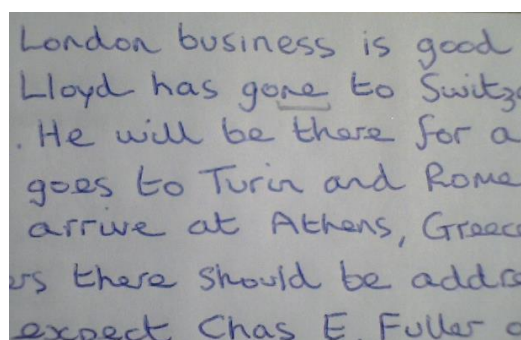 London business is good
Lloyd has gone to Switz
. He will be there for a
goes to Turin and Rome
arrive at Athens, Greece
rs there should be addre
expect Chas E. Fuller